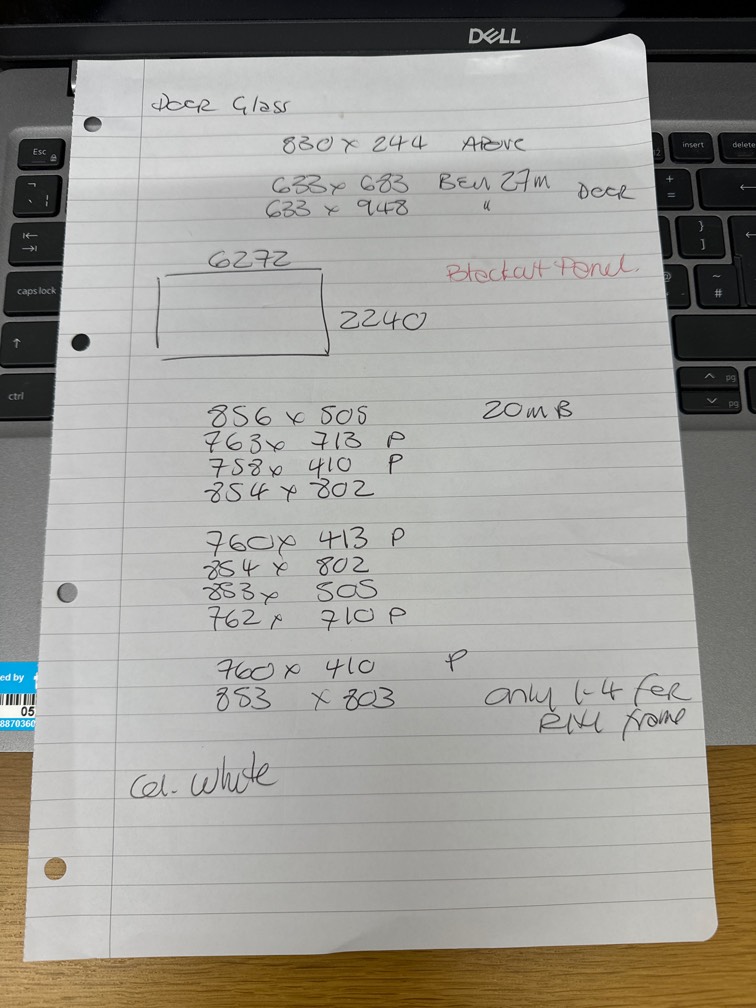 DELL
Esc
insert
delete
caps lock
ctrl
pg
pg
Door Glass
830 x 244 Above
633 x 683 27m Door
633 x 948 "
6272
Blockout Panel.
2240
856 x 505 20m B
763 x 713 P
758 x 410 P
854 x 802
760 x 413 P
854 x 802
853 x 505
762 x 710 P
760 x 410 P
853 x 803 only 1-4 for
frame
ed by
05
8870360
Col. White